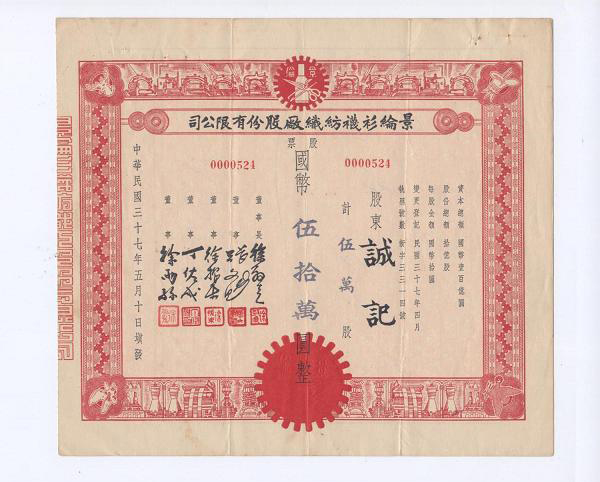 景綸衫襪紡織厰股份有限公司
股票
0000524
0000524
資本總額 國幣壹百億圓
股份總額 拾億股
每股金額 國幣拾圓
變更登記 民國三十七年四月
執照號數 新字三三一四號
股東 誠記
計 伍萬 股
國幣 伍拾萬 圓整
董事長
董事
董事
董事
董事
中華民國三十七年五月十日填發